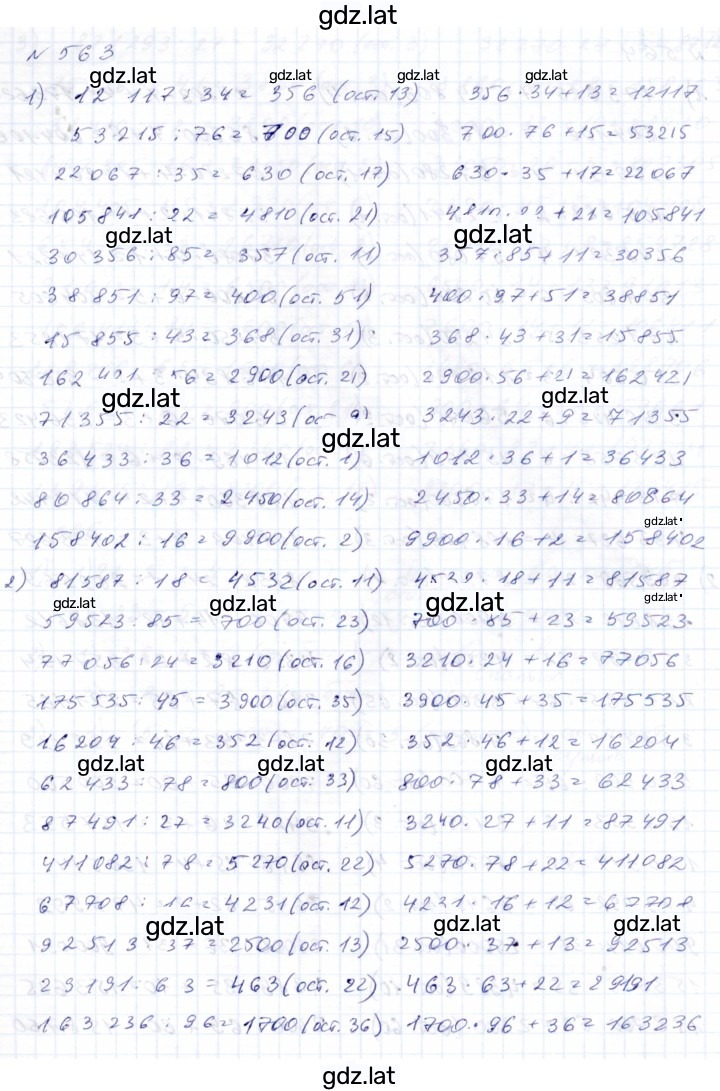 gdz.lat
№ 563
gdz.lat gdz.lat gdz.lat gdz.lat
1) 12 117 : 34 = 356 (ост. 13) 356 · 34 + 13 = 12117.
53215 : 76 = 700 (ост. 15) 700 · 76 + 15 = 53215
22067 : 35 = 630 (ост. 17) 630 · 35 + 17 = 22067
105841 : 22 = 4810 (ост. 21) 4810 · 22 + 21 = 105841
gdz.lat gdz.lat
30356 : 85 = 357 (ост. 11) 357 · 85 + 11 = 30356
38851 : 97 = 400 (ост. 51) 400 · 97 + 51 = 38851
15855 : 43 = 368 (ост. 31) 368 · 43 + 31 = 15855
162421 : 56 = 2900 (ост. 21) 2900 · 56 + 21 = 162421
gdz.lat gdz.lat
71355 : 22 = 3243 (ост. 9) 3243 · 22 + 9 = 71355
gdz.lat
36433 : 36 = 1012 (ост. 1) 1012 · 36 + 1 = 36433
80864 : 33 = 2450 (ост. 14) 2450 · 33 + 14 = 80864
gdz.lat
158402 : 16 = 9900 (ост. 2) 9900 · 16 + 2 = 158402
2) 81587 : 18 = 4532 (ост. 11) 4532 · 18 + 11 = 81587
gdz.lat gdz.lat gdz.lat gdz.lat
59523 : 85 = 700 (ост. 23) 700 · 85 + 23 = 59523
77056 : 24 = 3210 (ост. 16) 3210 · 24 + 16 = 77056
175535 : 45 = 3900 (ост. 35) 3900 · 45 + 35 = 175535
16204 : 46 = 352 (ост. 12) 352 · 46 + 12 = 16204
gdz.lat gdz.lat gdz.lat
62433 : 78 = 800 (ост. 33) 800 · 78 + 33 = 62433
87491 : 27 = 3240 (ост. 11) 3240 · 27 + 11 = 87491
411082 : 78 = 5270 (ост. 22) 5270 · 78 + 22 = 411082
67708 : 16 = 4231 (ост. 12) 4231 · 16 + 12 = 67708
gdz.lat gdz.lat gdz.lat
92513 : 37 = 2500 (ост. 13) 2500 · 37 + 13 = 92513
29191 : 63 = 463 (ост. 22) 463 · 63 + 22 = 29191
163236 : 96 = 1700 (ост. 36) 1700 · 96 + 36 = 163236
gdz.lat